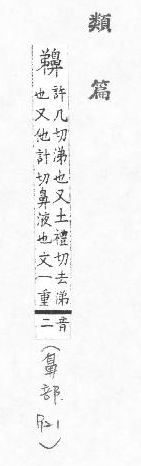 類篇
許几切涕也又土禮切去涕
也又他計切鼻液也文一重
音
二
(鼻部.